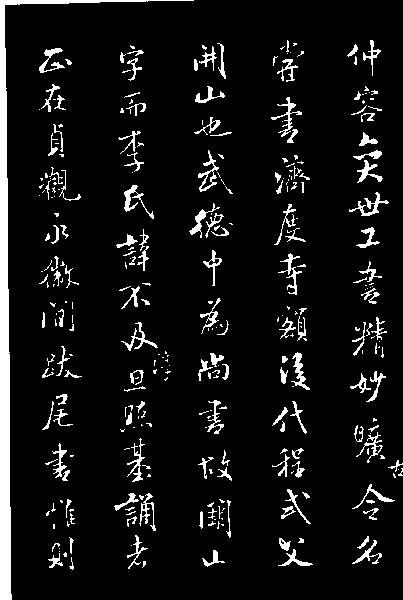 仲容奕世工書精妙曠古今名
嘗書濟度寺額後代程式父
開山也武德中為尚書故闕山
字而李氏諱不及淳旦照基誦者
正在貞觀永徽間跋尾書惟則